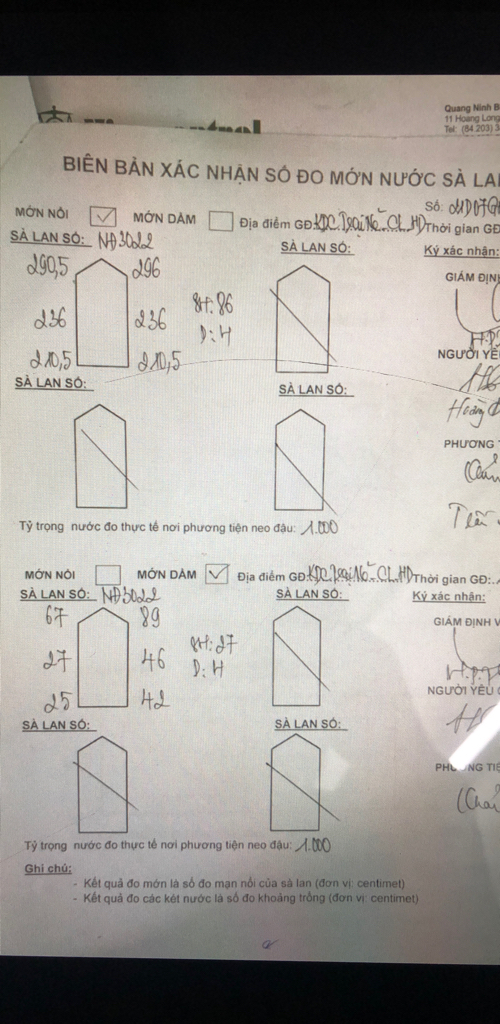 Quang Ninh B
11 Hoang Long
Tel: (84 203) 3
BIÊN BẢN XÁC NHẬN SỐ ĐO MỚN NƯỚC SÀ LAN
Số:
MỚN NỔI ☑ MỚN DẦM ☐ Địa điểm GĐ: Thời gian GĐ
SÀ LAN SỐ: NĐ3022 SÀ LAN SỐ: Ký xác nhận:
290,5 296 GIÁM ĐỊN
236 236 SH: 86
D: H
210,5 210,5 NGƯỜI YÊ
SÀ LAN SỐ: SÀ LAN SỐ:
Hoàng
PHƯƠNG T
Tỷ trọng nước đo thực tế nơi phương tiện neo đậu: 1.000
MỚN NỔI ☐ MỚN DẦM ☑ Địa điểm GĐ: Thời gian GĐ:
SÀ LAN SỐ: NĐ3022 SÀ LAN SỐ: Ký xác nhận:
67 89 GIÁM ĐỊNH V
27 46 SH: 27
D: H
25 42 NGƯỜI YÊU C
SÀ LAN SỐ: SÀ LAN SỐ:
PHƯƠNG TIỆ
Tỷ trọng nước đo thực tế nơi phương tiện neo đậu: 1.000
Ghi chú:
- Kết quả đo mớn là số đo mạn nổi của sà lan (đơn vị: centimet)
- Kết quả đo các két nước là số đo khoảng trống (đơn vị: centimet)